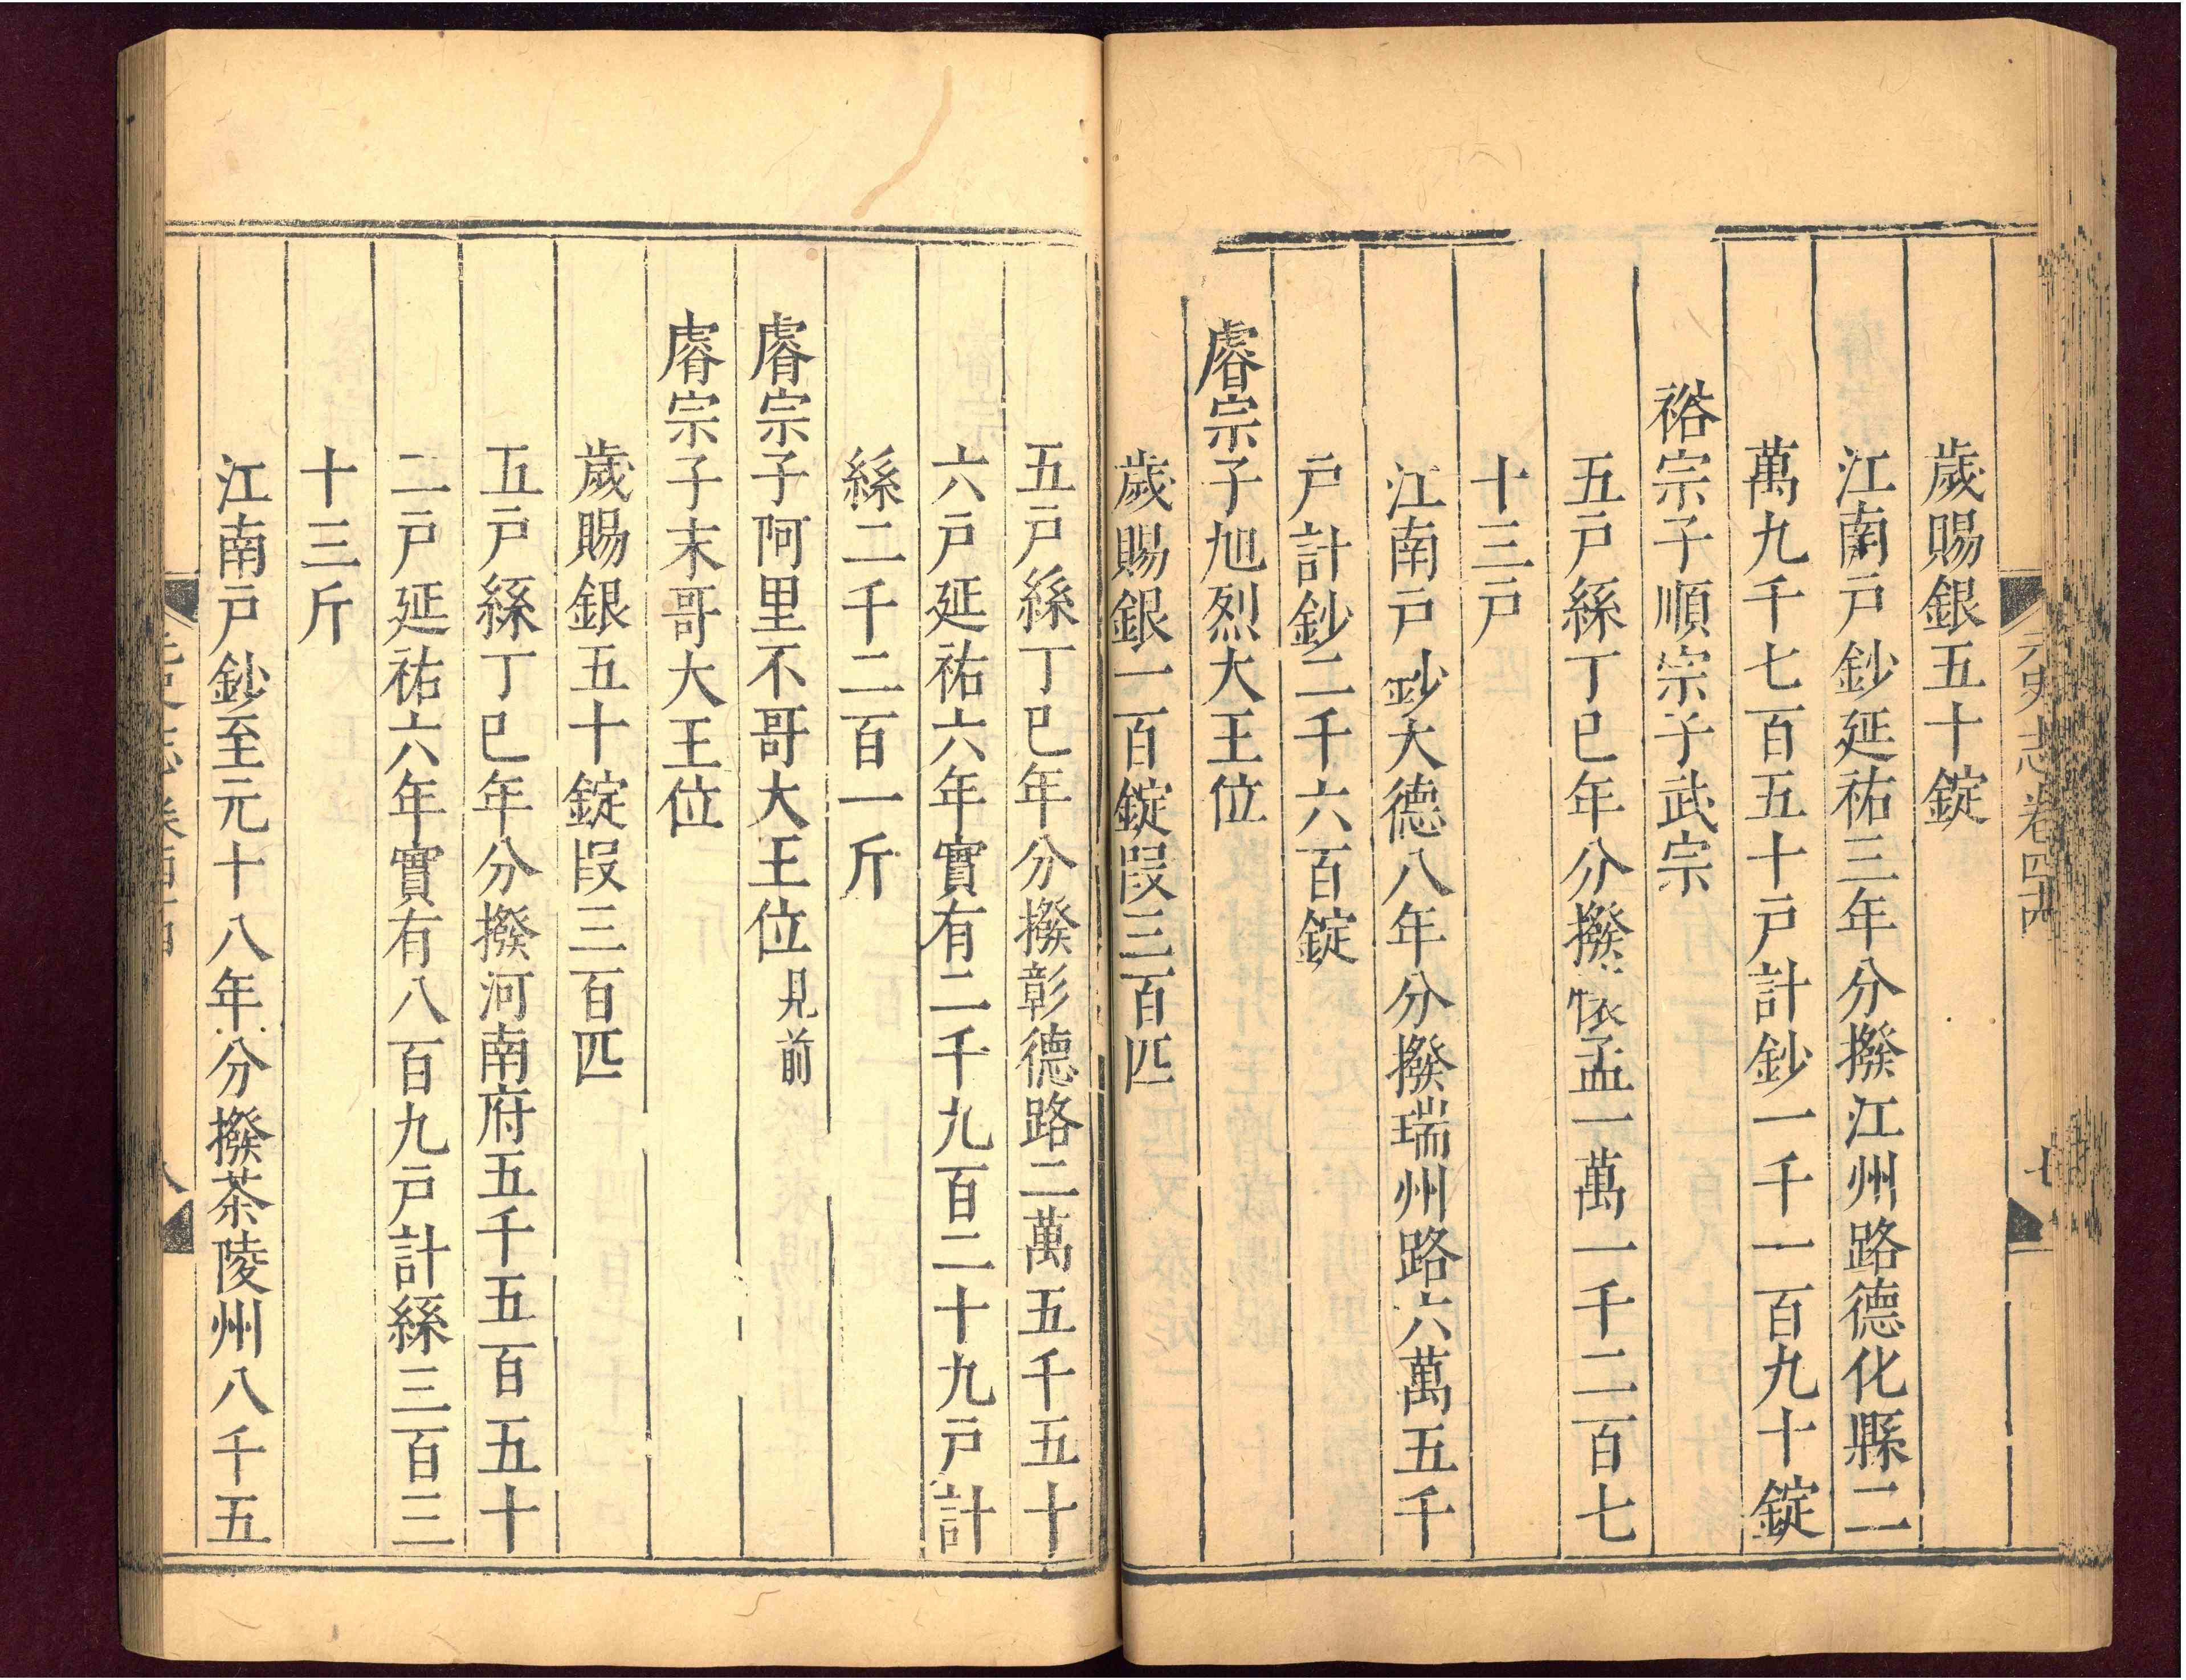 元史志卷四十四
七
歲賜銀五十錠
江南戸鈔延祐三年分撥江州路德化縣二
萬九千七百五十戸計鈔一千一百九十錠
裕宗子順宗子武宗
五戸絲丁巳年分撥懷孟一萬一千二百七
十三戸
江南戸鈔大德八年分撥瑞州路六萬五千
戸計鈔二千六百錠
睿宗子旭烈大王位
歲賜銀一百錠段三百匹
五戸絲丁巳年分撥彰德路二萬五千五十
六戸延祐六年實有二千九百二十九戸計
絲二千二百一斤
睿宗子阿里不哥大王位見前
睿宗子末哥大王位
歲賜銀五十錠段三百匹
五戸絲丁巳年分撥河南府五千五百五十
二戸延祐六年實有八百九戸計絲三百三
十三斤
江南戸鈔至元十八年分撥茶陵州八千五
八